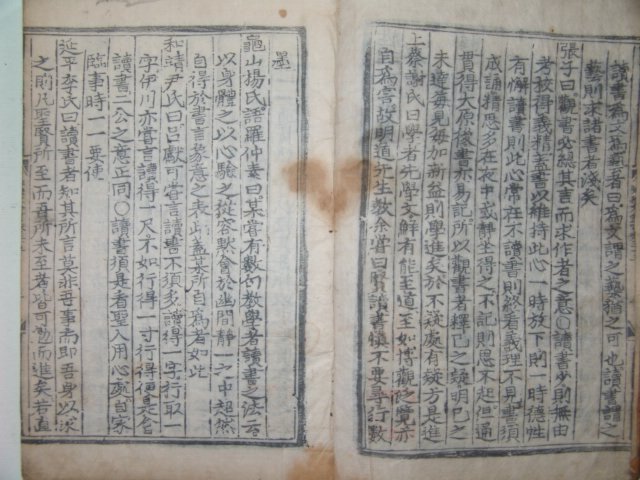 讀書爲文爲藝者曰爲文謂之藝猶之可也讀書謂之
藝則求諸書者淺矣
張子曰觀書必緫其言而求作者之意○讀書少則無由
考校得義精盖書以維持此心一時放下則一時德性
有懈讀書則此心常在不讀書則終看義理不見書須
成誦精思多在夜中或靜坐得之不記則思不起但通
貫得大原後書亦易記所以觀書者釋己之疑明己之
未達每見每加新益則學進矣於不疑處有疑方是進
上蔡謝氏曰學者先學文鮮有能至道至如博觀泛覽亦
自爲害故明道先生教余嘗曰賢讀書愼不要尋行數
墨
龜山揚氏語羅仲素曰某嘗有數句教學者讀書之法云
以身體之以心驗之從容默會於幽間靜一之中超然
自得於書言象意之表此盖某所自爲者如此
和靖尹氏曰呂獻可嘗言讀書不須多讀得一字行取一
字伊川亦嘗言讀得一尺不如行得一寸行得便是會
讀書二公之意正同○讀書須是看聖人用心處自家
臨事時一一要使
延平李氏曰讀書者知其所言莫非吾事而即吾身以求
之則凡聖賢所至而吾所未至者皆可勉而進矣若直